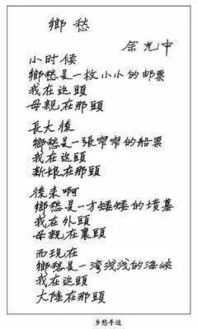 鄉愁
余光中
小时候
鄉愁是一枚小小的邮票
我在这頭
母親在那頭
長大後
鄉愁是一張窄窄的船票
我在这頭
新娘在那頭
後來啊
鄉愁是一方矮矮的墳墓
我在外頭
母親在裏頭
而现在
鄉愁是一湾浅浅的海峡
我在这頭
大陸在那頭
乡愁手迹